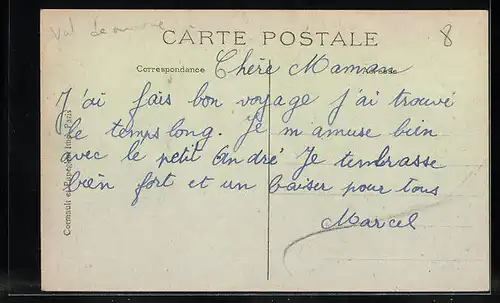 Val de marne
8
CARTE POSTALE
Correspondance
Chère Maman
J'ai fais bon voyage j'ai trouvé
le temps long. Je m'amuse bien
avec le petit André Je tembrasse
bien fort et un baiser pour tous
Marcel